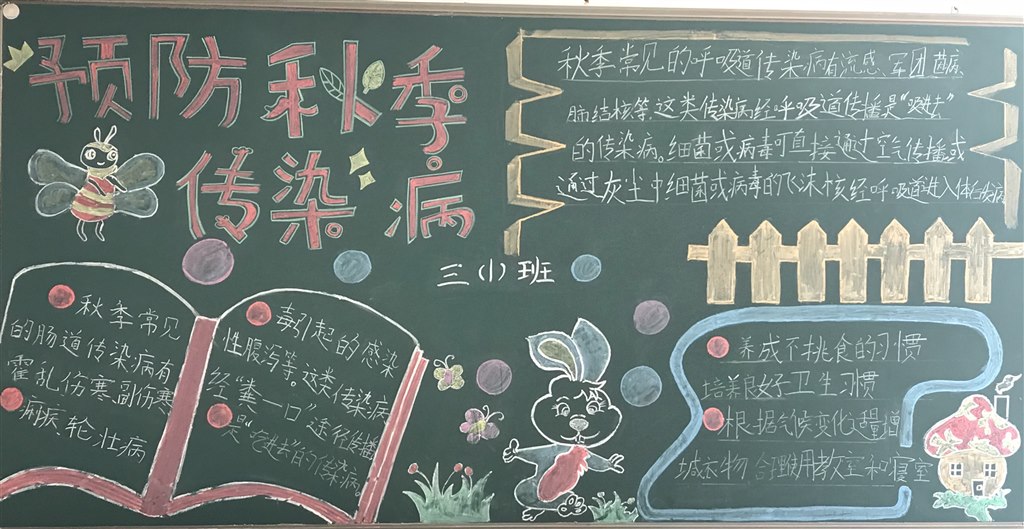 预防秋季
传染病
秋季常见的呼吸道传染病有流感、军团菌病、
肺结核等。这类传染病经呼吸道传播是“吸进去”
的传染病。细菌或病毒可直接通过空气传播或
通过灰尘中细菌或病毒的飞沫核经呼吸道进入体
三(1)班
秋季常见
的肠道传染病有
霍乱伤寒副伤寒
痢疾轮壮病
毒引起的感染
性腹泻等。这类传染病
经“粪一口”途径传播
是“吃进去”的传染病。
养成不挑食的习惯
培养良好卫生习惯
根据气候变化适增
减衣物 合理使用教室和寝室